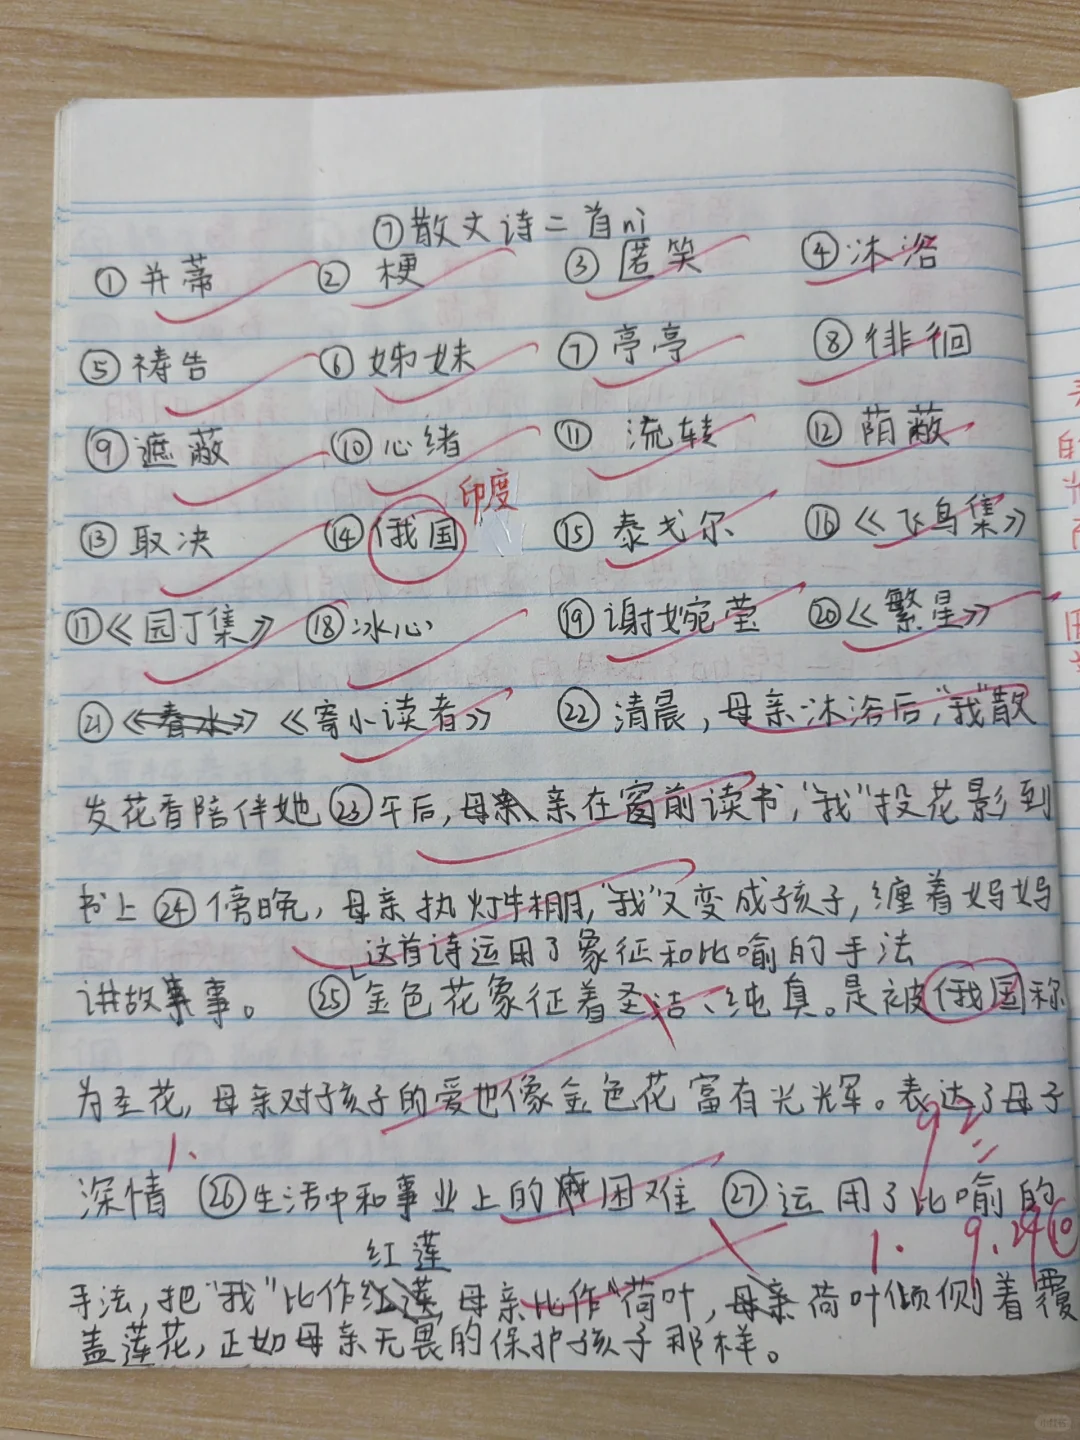 ⑦散文诗二首nì
①并蒂 ②梗 ③匿笑 ④沐浴
⑤祷告 ⑥姊妹 ⑦亭亭 ⑧徘徊
⑨遮蔽 ⑩心绪 ⑪流转 ⑫荫蔽
印度
⑬取决 ⑭俄国 ⑮泰戈尔 ⑯《飞鸟集》
⑰《园丁集》 ⑱冰心 ⑲谢婉莹 ⑳《繁星》
㉑《春水》《寄小读者》 ㉒清晨,母亲沐浴后,"我"散
发花香陪伴她 ㉓午后,母亲亲在窗前读书,"我"投花影到
书上 ㉔傍晚,母亲执灯牛棚,"我"又变成孩子,缠着妈妈
这首诗运用了象征和比喻的手法
讲故事事。 ㉕金色花象征着圣洁、纯真。是被俄国称
为圣花,母亲对子孩子的爱也像金色花富有光辉。表达了母子
92
1.
深情 ㉖生活中和事业上的困难 ㉗运用了比喻的
红莲
1. 9.24
手法,把"我"比作红莲,母亲比作"荷叶,母亲荷叶倾侧着覆
盖莲花,正如母亲无畏的保护孩子那样。
的
小红书